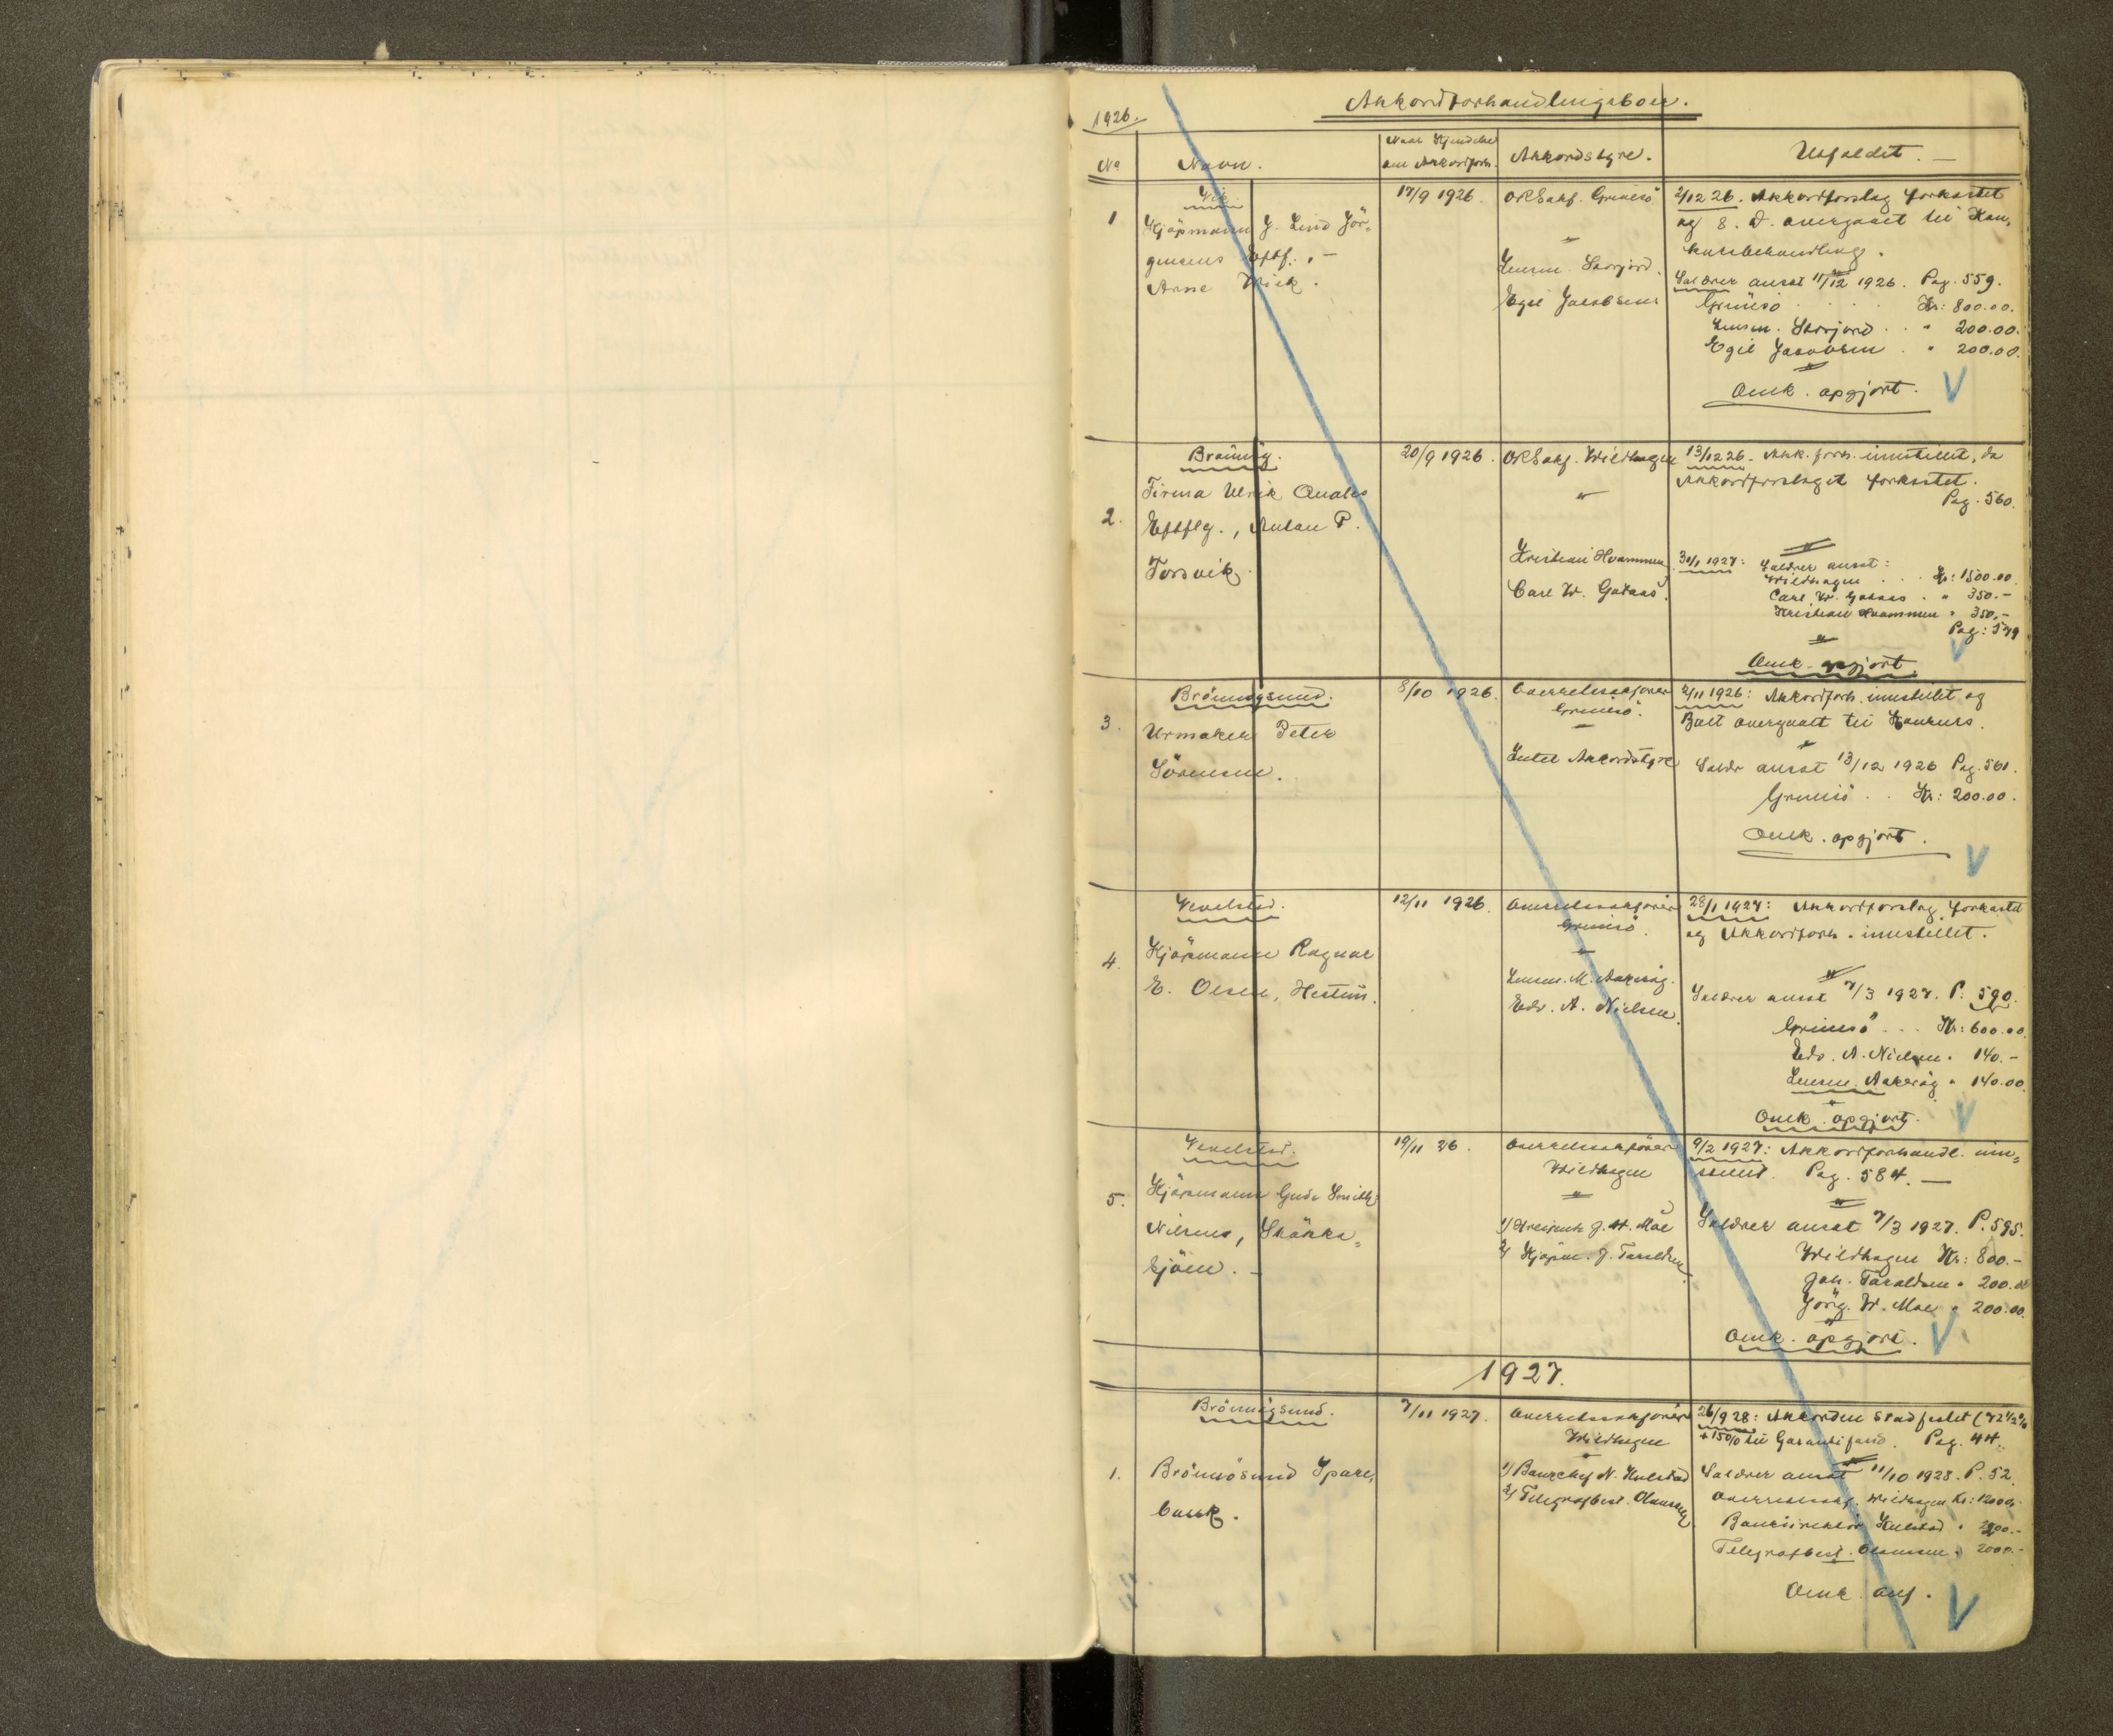 Akkordforhandlingsboer.
1926.
No
Navn.
Naar Kjendelse
om Akkordforh.
Akkordstyre.
Utfaldet. —
Vik
1
Kjöpmann J. Lind Jör-
gensens Eftf., —
Arne Wick.
17/9 1926.
ORSakf. Grimsö
Lensm. Storjord.
Egil Jacobsen
2/12 26. Akkordforslag forkastet
og s. D. overgaaet til Kon-
kursbehandling.
Salærer ansat 11/12 1926. Pag. 559.
Grimsö Kr: 800.00.
Lensm. Storjord " 200.00.
Egil Jacobsen " 200.00.
Omk. opgjort.
Brönnöy.
2.
Firma Ulrik Quales
Eftflg., Anton P.
Torsvik.
20/9 1926.
ORSakf. Wildhagen
Kristian Hvammen
Carl W. Gataas.
13/12 26. Akk. forh. innstillet, da
Akkordforslaget forkastet.
Pag. 560.
31/1 1927: Salærer ansat:
Wildhagen Kr: 1500.00.
Carl W. Gataas " 350.-
Kristian Hvammen " 350.-
Pag: 579
Omk. opgjort.
Brönnöysund.
3.
Urmaker Peter
Sörensen.
8/10 1926.
Overretssakförer
Grimsö.
Intet Akkordstyre
2/11 1926: Akkordforh. innstillet og
Boet overgaatt til Konkurs.
Salær ansat 13/12 1926 Pag. 561.
Grimsö Kr: 200.00.
Omk. opgjort.
Vevelstad.
4.
Kjöpmann Ragnar
E. Olsen, Hestun.
12/11 1926.
Overretssakförer
Grimsö.
Lensm. M. Aakviig.
Edv. A. Nielsen.
28/1 1927: Akkordforslag forkastet
og Akkordforh. innstillet.
Salærer ansat 7/3 1927. P. 590.
Grimsö Kr: 600.00.
Edv. A. Nielsen " 140.-
Lensm. Aakviig " 140.00.
Omk. opgjort.
Vevelstad.
5.
Kjöpmann Gude Smith
Nilsens, Stokka-
sjöen. —
19/11 26.
Overretssakförer
Wildhagen
1) Disponent J. H. Moe
2) Kjöpm. J. Taraldsen.
9/2 1927: Akkordforhandl. inn-
stillet. Pag. 584. —
Salærer ansat 7/3 1927. P. 595.
Wildhagen Kr: 800.-
Joh. Taraldsen " 200.00
Jörg. H. Moe " 200.00.
Omk. opgjort.
1927.
Brönnöysund.
1.
Brönnösund Spare-
bank.
7/11 1927.
Overretssakförer
Wildhagen
1) Bankchef N. Hulstad
2) Telegrafbest. Olaussen
26/9 28: Akkorden stadfestet (72 1/2 %
+ 15% til Garantifond. Pag. 44.
Salærer ansat 11/10 1928. P. 52.
Overretssakf. Wildhagen Kr: 12000.-
Bankdirektör Hulstad "
Telegrafbest. Olaussen " 2000.-
Omk.